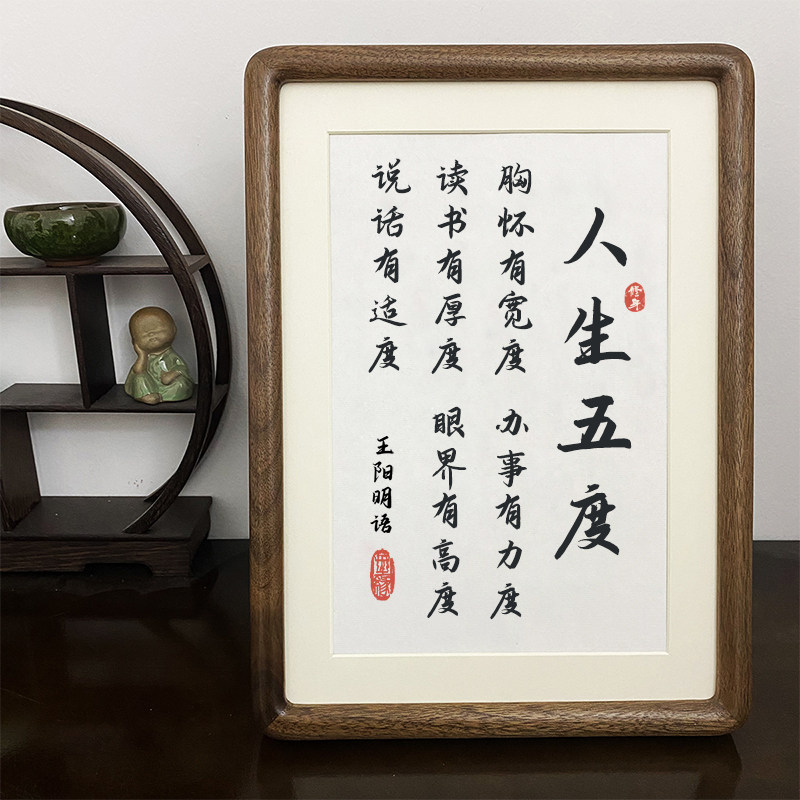 人生五度
修年
胸怀有宽度 办事有力度
读书有厚度 眼界有高度
说话有适度
王阳明语